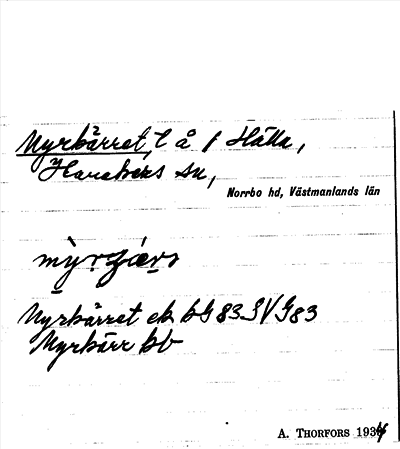 Myrkärret, l å f Hälla,
Harakers sn,
Norrbo hd, Västmanlands län
Myrkärret ek bG 83 SVG83
Myrkärr bb
A. THORFORS 1934